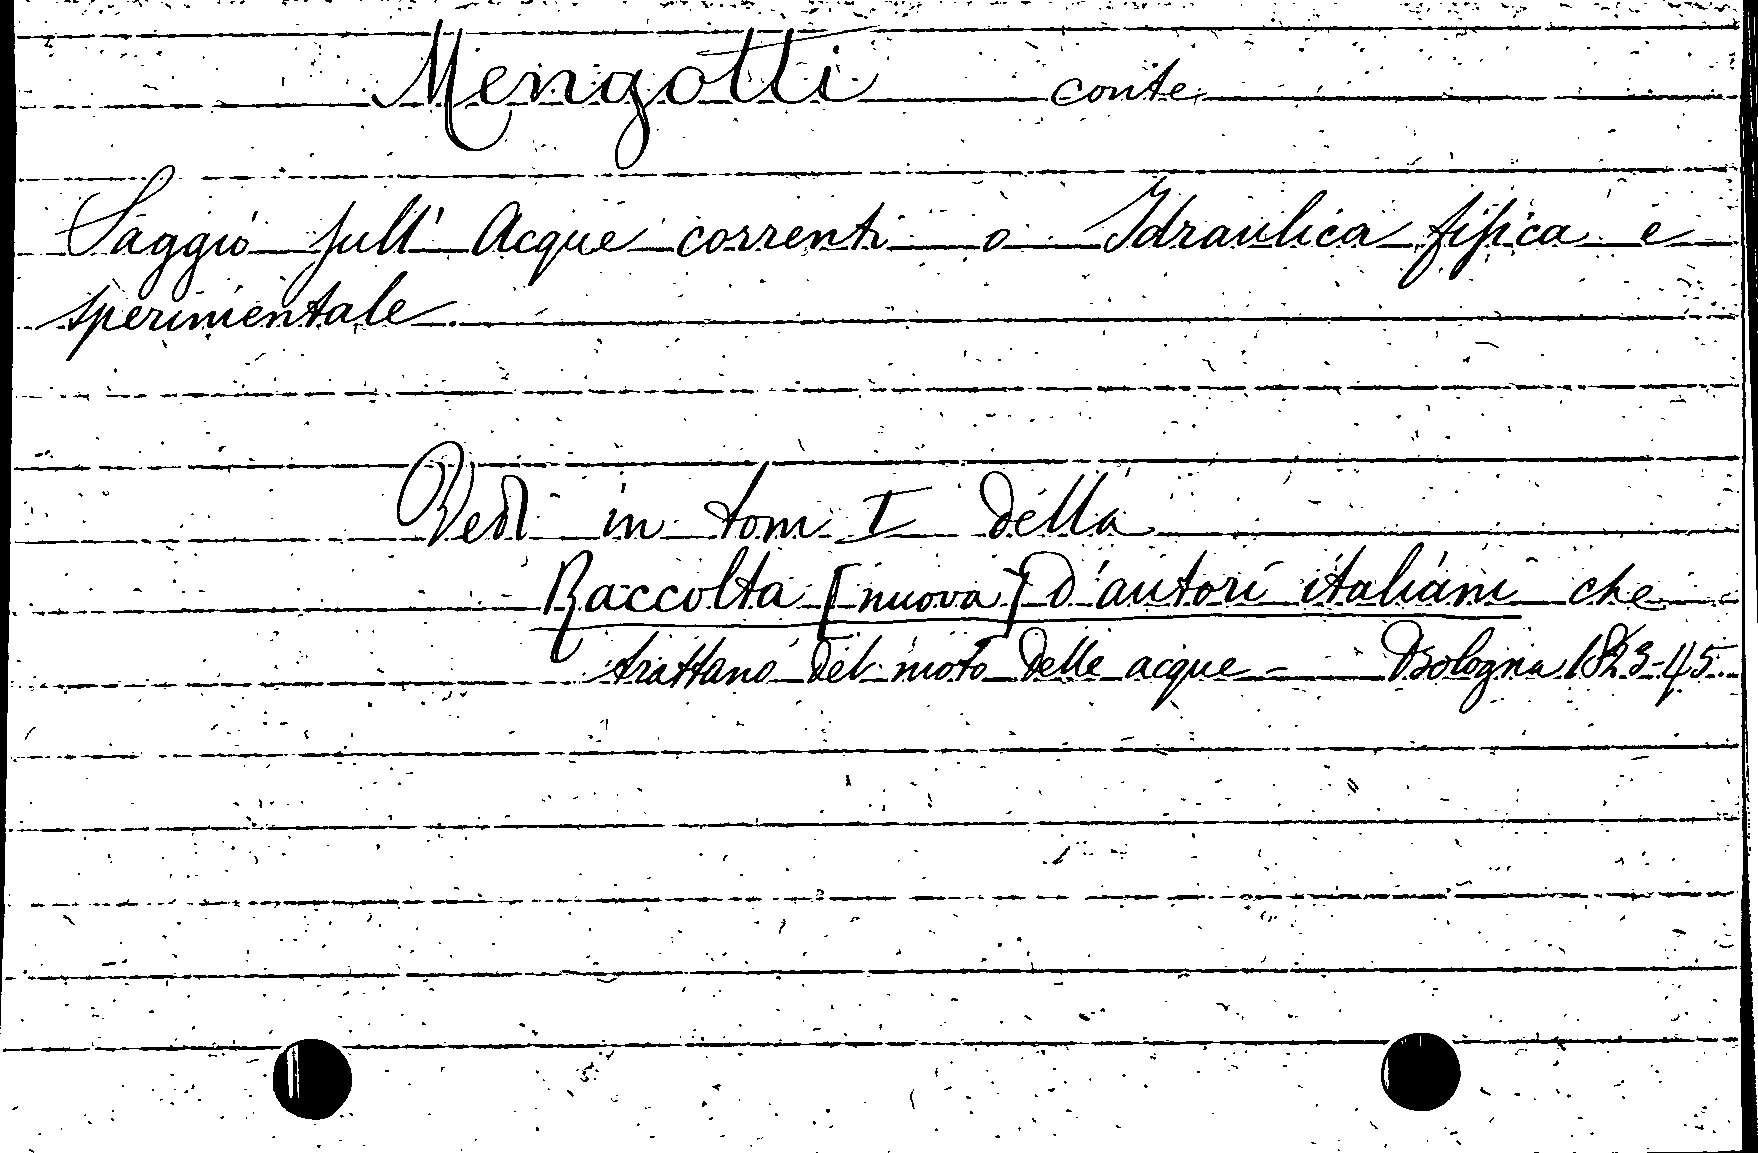 Mengotti conte
Saggio sull' Acque correnti o Idraulica fisica e
sperimentale
Vedi in tom I della
Raccolta [nuova] d'autori italiani che
trattano del moto delle acque - Bologna 1823-45